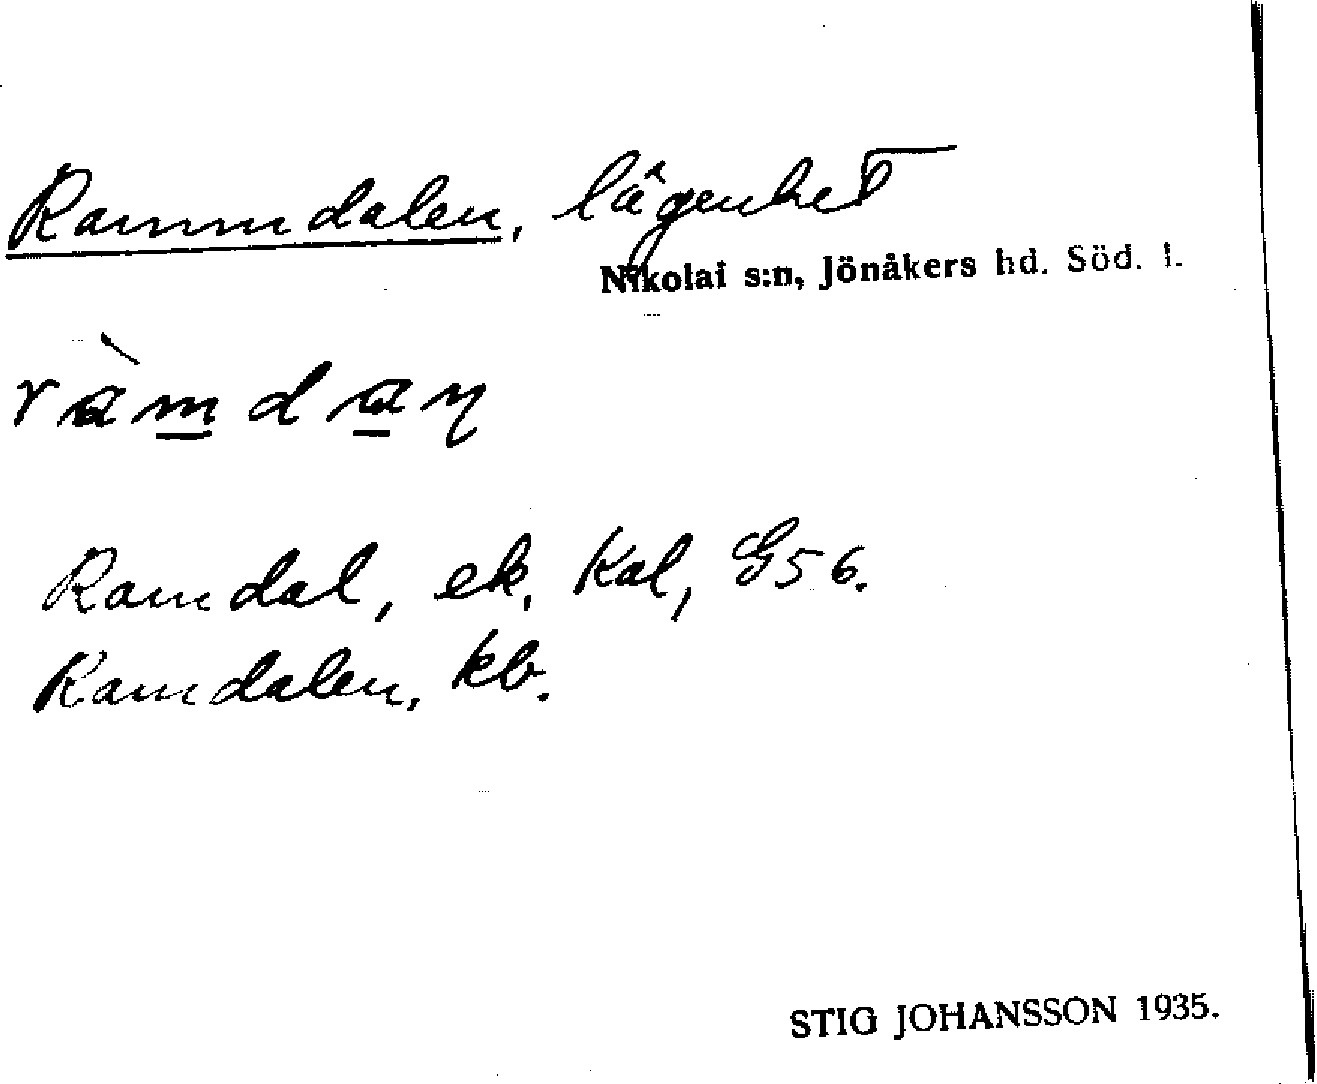 Rammdalen, lägenhet
Nikolai s:n, Jönåkers hd. Söd. l.
ràmdan
Ramdal, ek. kal, G56.
Ramdalen, kb.
STIG JOHANSSON 1935.